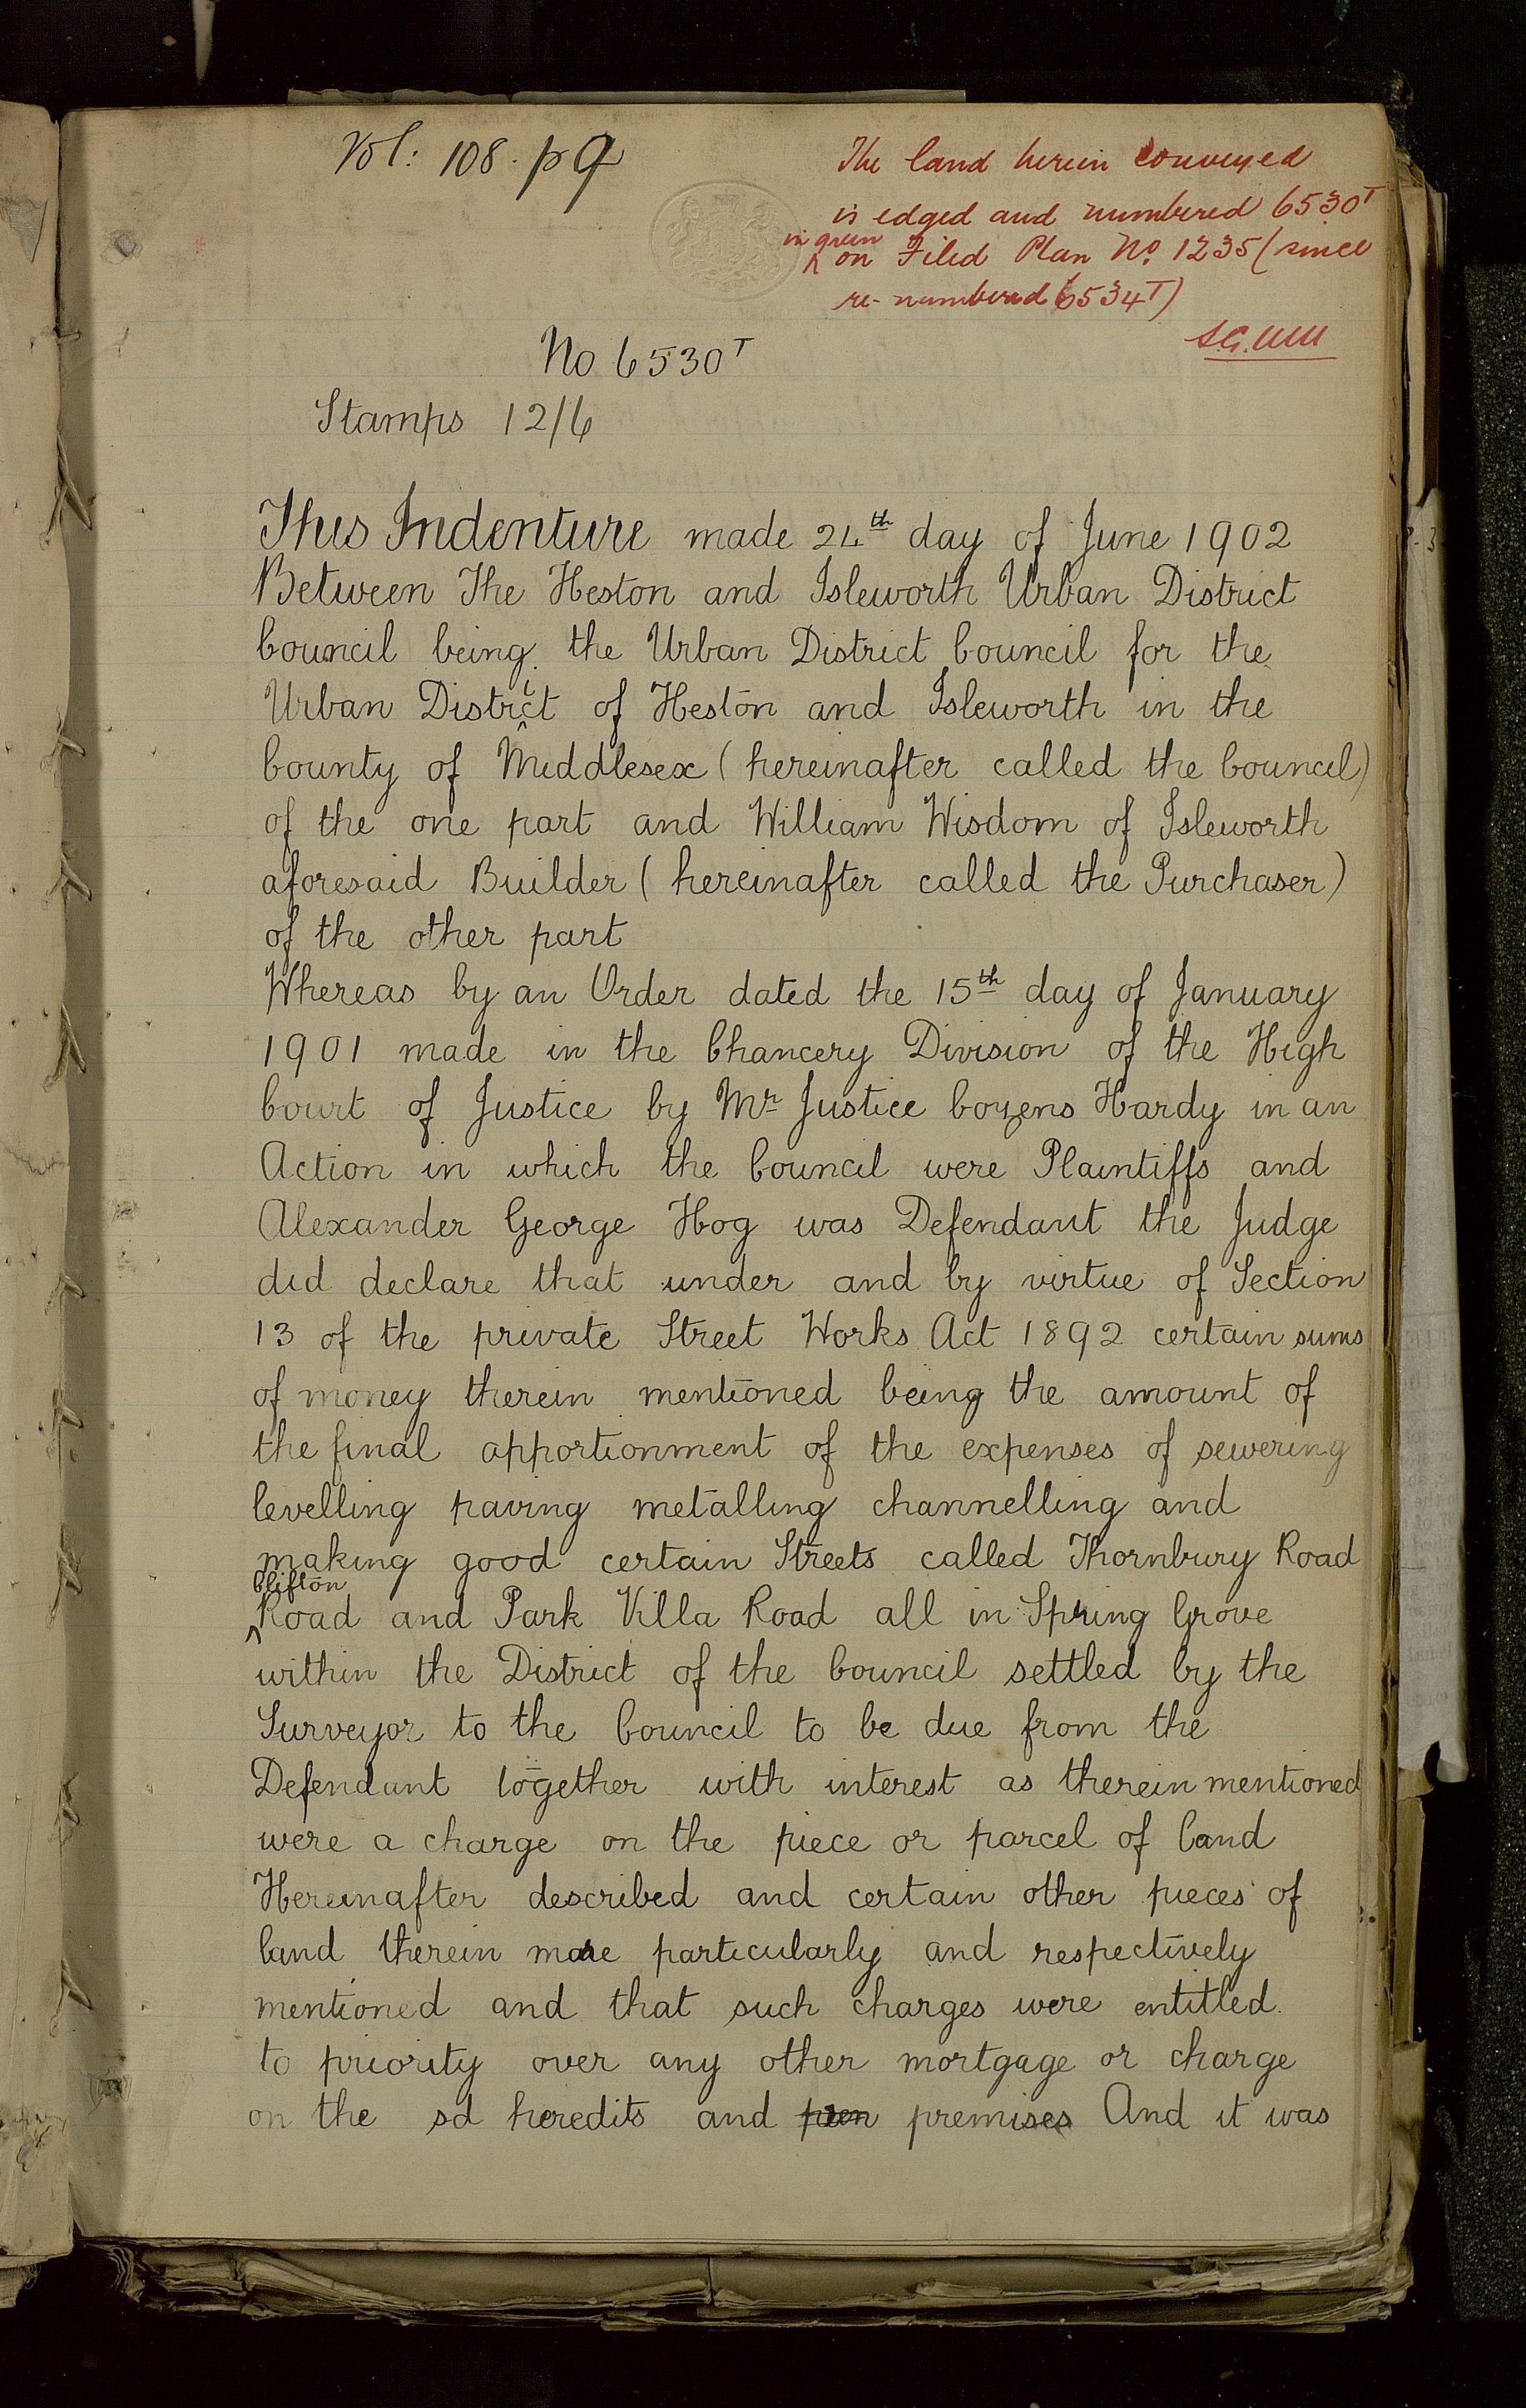 Vol: 108. p 9
The land herein conveyed
is edged and numbered 6530T
in green
on Filed Plan No. 1235 (since
re-numbered 6534T)
No 6530T
Stamps 12/6
This Indenture made 24th day of June 1902
Between The Heston and Isleworth Urban District
Council being the Urban District Council for the
Urban District of Heston and Isleworth in the
County of Middlesex (hereinafter called the Council)
of the one part and William Wisdom of Isleworth
aforesaid Builder (hereinafter called the Purchaser)
of the other part
Whereas by an Order dated the 15th day of January
1901 made in the Chancery Division of the High
Court of Justice by Mr Justice Cozens Hardy in an
Action in which the Council were Plaintiffs and
Alexander George Hog was Defendant the Judge
did declare that under and by virtue of Section
13 of the private Street Works Act 1892 certain sums
of money therein mentioned being the amount of
the final apportionment of the expenses of sewering
levelling paving metalling channelling and
making good certain Streets called Thornbury Road
Clifton
Road and Park Villa Road all in Spring Grove
within the District of the Council settled by the
Surveyor to the Council to be due from the
Defendant together with interest as therein mentioned
were a charge on the piece or parcel of land
Hereinafter described and certain other pieces of
land therein more particularly and respectively
mentioned and that such charges were entitled
to priority over any other mortgage or charge
on the sd heredits and prem premises And it was